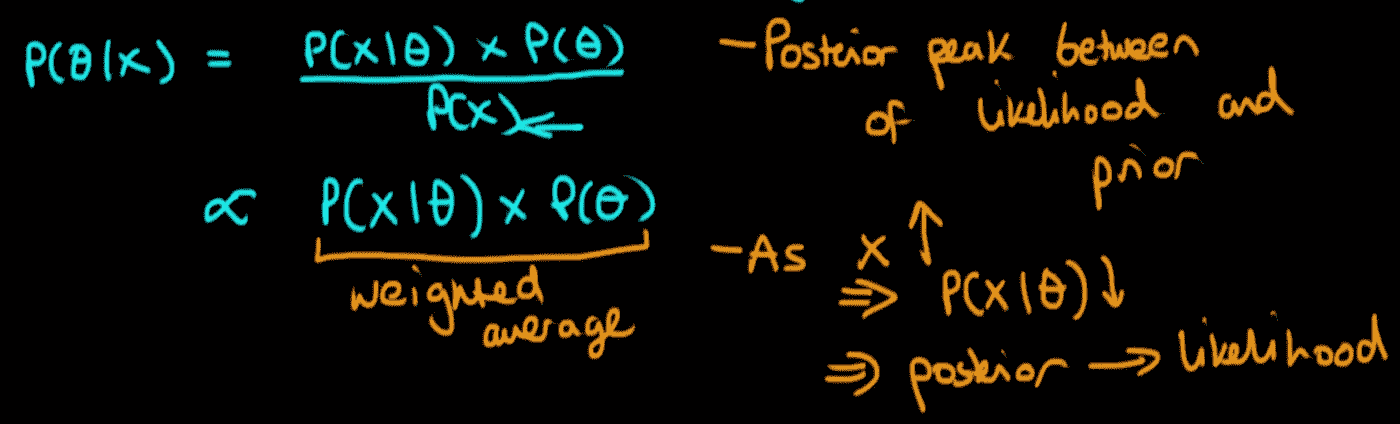 P(θ|X) = P(X|θ) × P(θ) / P(X) ←
∝ P(X|θ) × P(θ)
weighted
average
- Posterior peak between
of likelihood and
prior
- As X ↑
⇒ P(X|θ) ↓
⇒ posterior → likelihood